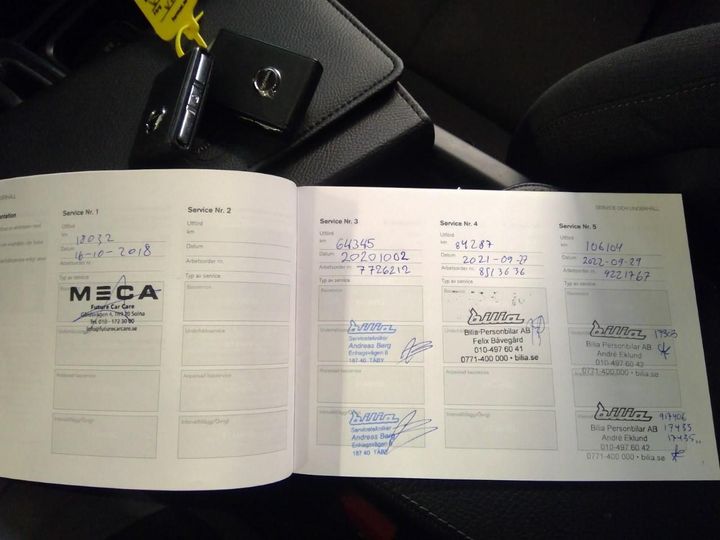 SERVICE OCH UNDERHÅLL
Service Nr. 1
Utförd
km 18032
Datum 16-10-2018
Arbetsorder nr.
Typ av service
MECA
Future Car Care
Tel. 010 - 172 30 00
info@futurecarcare.se
Anpassad basservice
Intervalltillägg/Övrigt
Service Nr. 2
Utförd
km
Datum
Arbetsorder nr.
Typ av service
Basservice
Underhållsservice
Anpassad basservice
Intervalltillägg/Övrigt
Service Nr. 3
Utförd
km 64345
Datum 20201002
Arbetsorder nr. 7726212
Typ av service
Basservice
bilia
Servicetekniker
Andreas Berg
Enhagsvägen 8
187 40 TÄBY
Anpassad basservice
bilia
Servicetekniker
Andreas Berg
Enhagsvägen 8
187 40 TÄBY
Service Nr. 4
Utförd
km 84287
Datum 2021-09-27
Arbetsorder nr. 8513636
Typ av service
bilia
Bilia Personbilar AB
Felix Båvegård
010-497 60 41
0771-400 000 • bilia.se
Anpassad basservice
Intervalltillägg/Övrigt
Service Nr. 5
Utförd
km 106104
Datum 2022-09-29
Arbetsorder nr. 9221767
Typ av service
Basservice
bilia
Bilia Personbilar AB
André Eklund
010-497 60 42
0771-400 000 • bilia.se
Anpassad basservice
bilia 917406
Bilia Personbilar AB 17435
André Eklund 17435
010-497 60 42
0771-400 000 • bilia.se